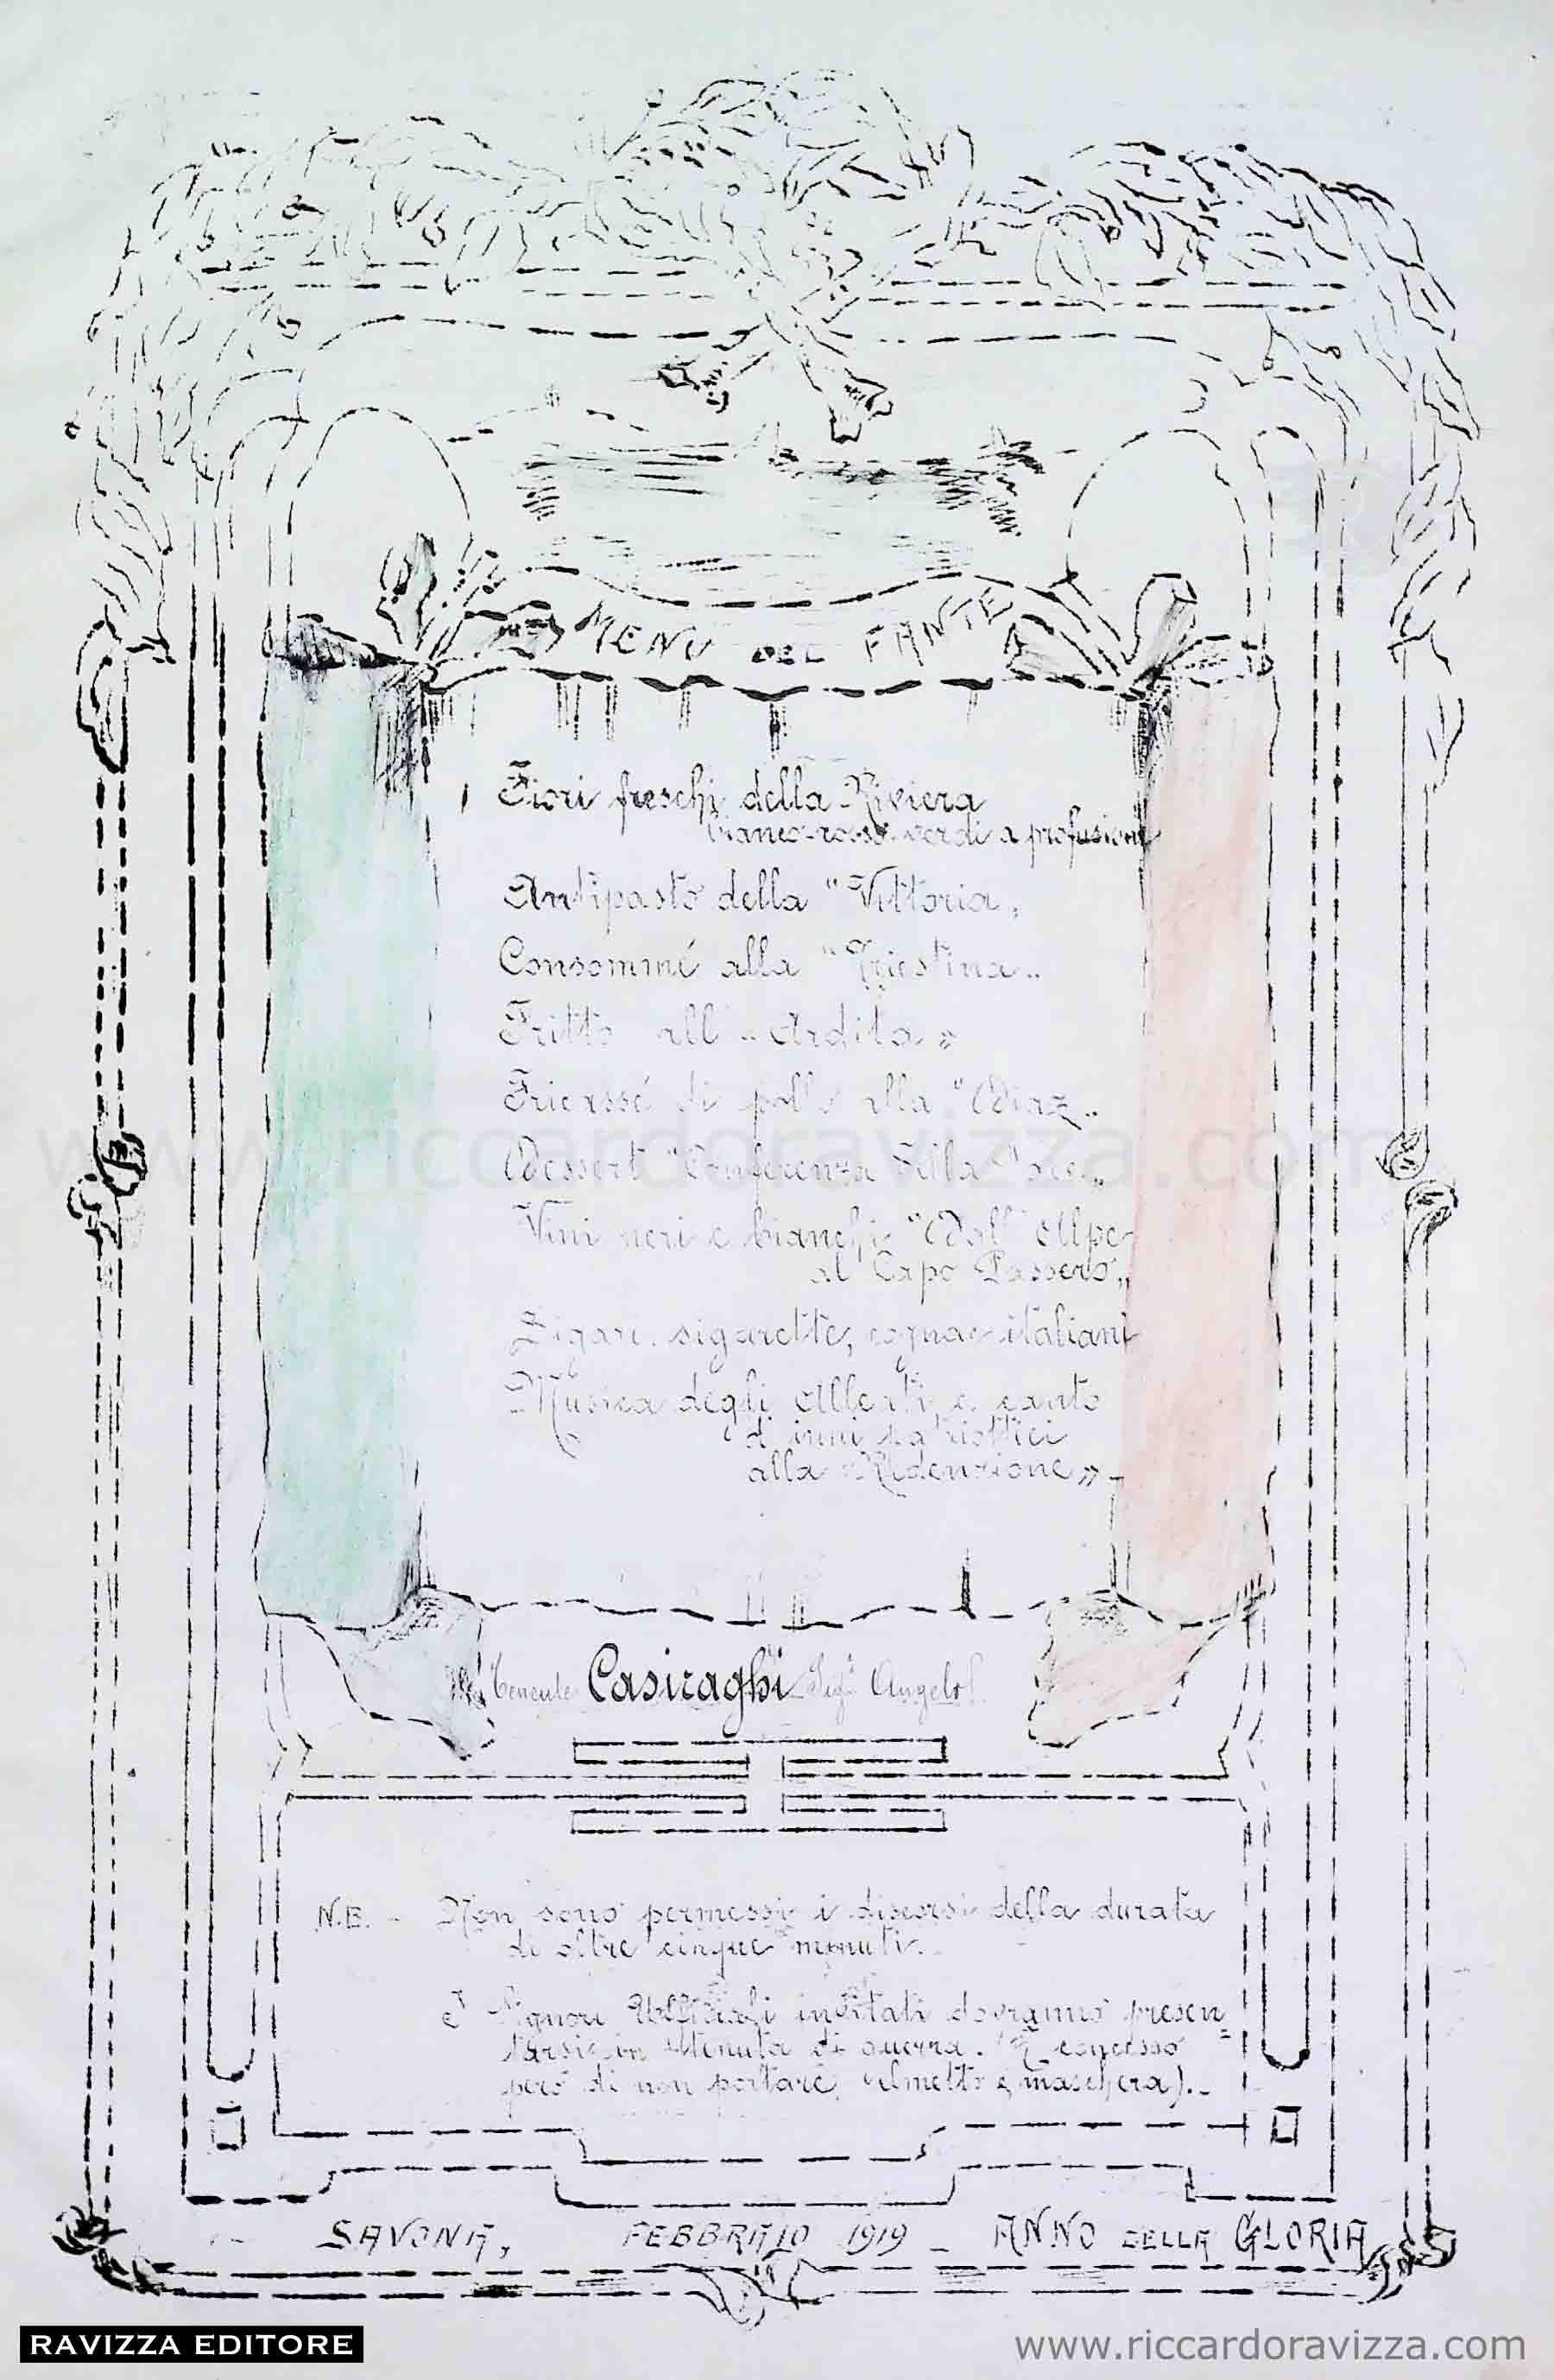 MENU DEL FANTE
Fiori freschi della Riviera
bianco-rosso-verdi a profusione
Antipasto della "Vittoria„
Consommé alla "Triestina„
Fritto all' "Ardita"
Fricassé di pollo alla "Diaz„
Dessert "Conferenza della Pace„
Vini neri e bianchi "Dall'Alpe
al Capo Passero„
Sigari, sigarette, cognac italiani
Musica degli Alleati e canto
di inni patriottici
alla "Redenzione»
Tenente Casiraghi Sigr Angelo
N.B. - Non sono permessi i discorsi della durata
di oltre cinque minuti.
I Signori Ufficiali invitati dovranno presen=
tarsi in tenuta di guerra. (È concesso
però di non portare elmetto e maschera).
SAVONA, FEBBRAIO 1919 - ANNO DELLA GLORIA
www.riccardoravizza.com
RAVIZZA EDITORE
www.riccardoravizza.com